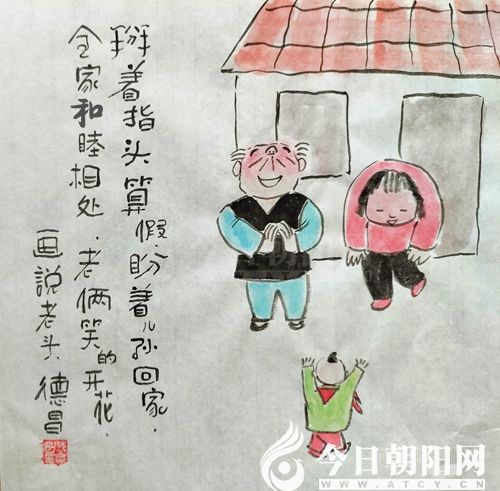 掰着指头算假.盼着儿孙回家.
全家和睦相处.老俩笑的开花.
画説老头 德昌
今日朝阳网
WWW.ATCY.CN